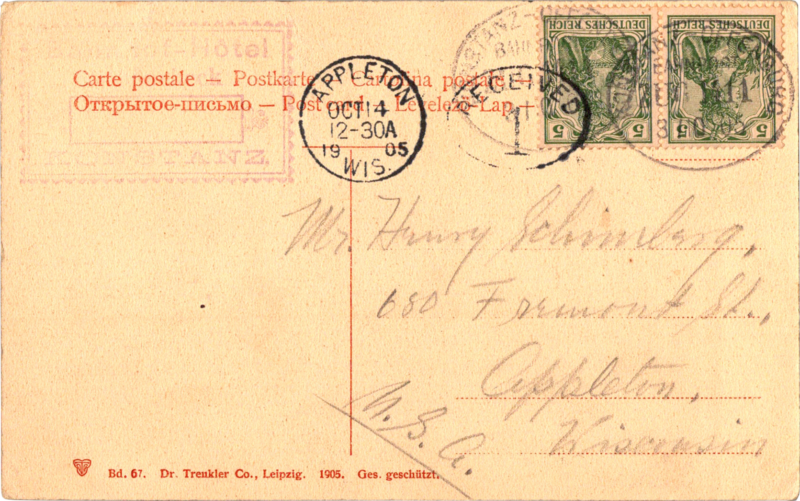 Bahnhof-Hôtel
KONSTANZ
Carte postale – Postkarte – Cartolina postale
Открытое-письмо – Post card – Levelező-Lap –
APPLETON
OCT 14
12-30A
19 05
WIS.
RECEIVED
1
KONSTANZ-OFFENBURG
DEUTSCHES REICH
5 5
DEUTSCHES REICH
5 5
Mr. Henry Schimberg,
680 Fremont St.,
Appleton,
Wisconsin
U.S.A.
Bd. 67. Dr. Trenkler Co., Leipzig. 1905. Ges. geschützt.